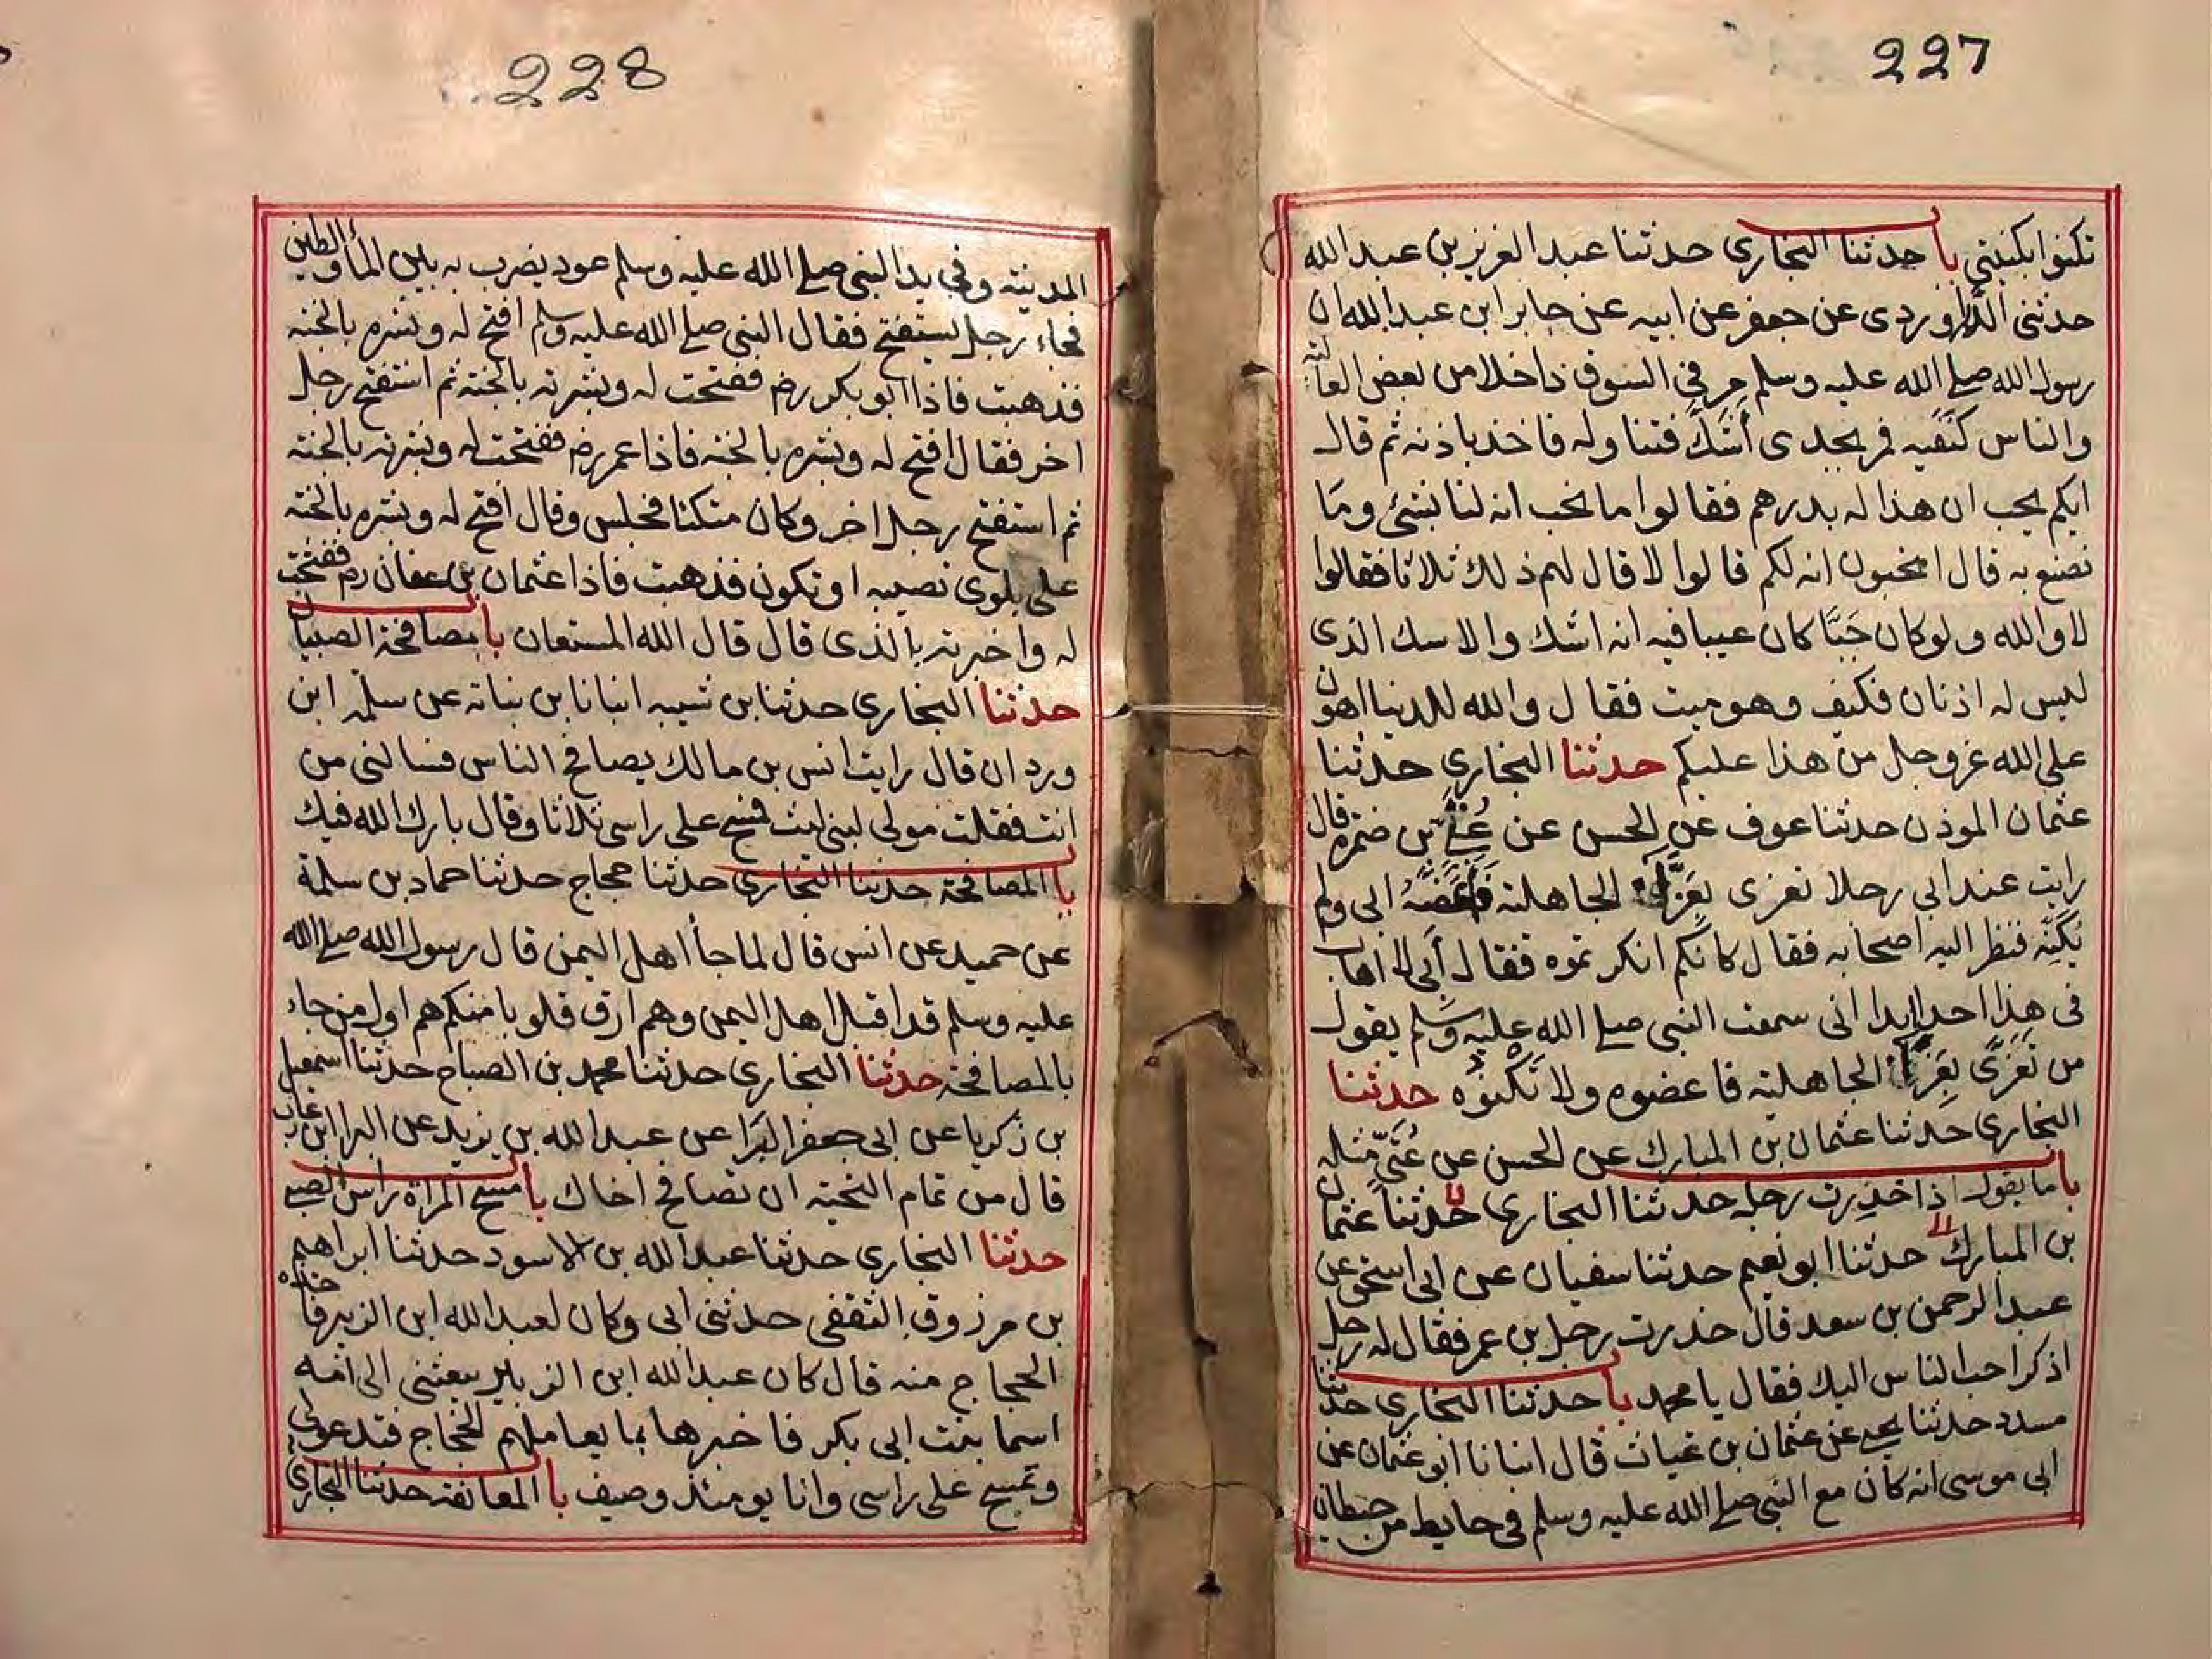 227
تكنوا بكنيتي باب حدثنا البخاري حدثنا عبد العزيز بن عبد الله
حدثني الدراوردى عن جعفر عن ابيه عن جابر ابن عبد الله ان
رسول الله صلے الله عليه وسلم مر في السوق داخلا من بعض العالية
والناس كنفيه فمر بجدى أَسَكَّ فتناوله فاخذ باذنه ثم قال
ايكم يحب ان هذا له بدرهم فقالوا ما نحب انه لنا بشئ وما
نصنع به قال اتحبون انه لكم قالوا لا قال لهم ذلك ثلاثا فقالوا
لا والله ولو كان حَيًّا كان عيبا فيه انه اسك والاسك الذى
ليس له اذنان فكيف وهو ميت فقال والله للدنيا اهون
على الله عزوجل من هذا عليكم حدثنا البخاري حدثنا
عثمان الموذن حدثنا عوف عن الحسن عن عُتَىّ بن ضمره قال
رايت عند ابي رجلا تعزى بعَزَاء الجاهلية فَأَعَضَّهُ ابى ولم
يُكَنِّه فنظر اليه اصحابه فقال كانكم انكرتموه فقال أنى لا اهاب
فى هذا احدا ابدا انى سمعت النبي صلے الله عليه وَسَلم يقول
من تَعَزَّى بِعَزَاء الجاهلية فاعضوه ولا تَكْنُوْه حدثنا
البخاري حدثنا عثمان بن المبارك عن الحسن عن عُتَىّ مثله
باب ما يقول اذا خدِرت رجله حدثنا البخاري حدثنا عثمان
بن المبارك حدثنا ابو نعيم حدثنا سفيان عن ابى اسحق عن
عبد الرحمن بن سعد قال خدرت رجل بن عمر فقال له رجل
اذكر احب الناس اليك فقال يا محمد باب حدثنا البخاري حدثنا
مسدد حدثنا يحيے عن عثمان بن غياث قال انبانا ابو عثمان عن
ابى موسى انه كان مع النبي صلے الله عليه وسلم فى حايط من حيطان
228
المدينة وفي يد النبي صلے الله عليه وسلم عود يضرب به بين المأ والطين
فجاء رجل يستفتح فقال النبى صلے الله عليه وسلم افتح له وبشره بالجنه
فذهبت فاذا ابو بكر رض ففتحت له وبشرته بالجنة ثم استفتح رجل
اخر فقال افتح له وبشره بالجنه فاذا عمر رض ففتحت له وبشرته بالجنه
ثم استفتح رجل اخر وكان متكئا فجلس وقال افتح له وبشره بالجنه
على بلوى تصيبه او تكون فذهبت فاذا عثمان بن عفان رض ففتحت
له واخبرته بالذى قال قال الله المستعان باب مصافحة الصبيان
حدثنا البخاري حدثنا بن شيبه انبانا بن نباته عن سلمة ابن
وردان قال رايت انس بن مالك يصافح الناس فسالنى من
انت فقلت مولى لبنى ليث فمسح على راسى ثلاثا وقال بارك الله فيك
باب المصافحة حدثنا البخاري حدثنا حجاج حدثنا حماد بن سلمة
عن حميد عن انس قال لما جأ اهل اليمن قال رسول الله صلے الله
عليه وسلم قد اقبل اهل اليمن وهم ارق قلوبا منكم هم اول من جاء
بالمصافحة حدثنا البخاري حدثنا محمد بن الصباح حدثنا اسمعيل
بن زكريا عن ابى جعفر البَرَا عن عبد الله بن يزيد عن البرا ابن عازب
قال من تمام التحية ان تصافح اخاك باب مسح المراة راس الصبى
حدثنا البخاري حدثنا عبد الله بن الاسود حدثنا ابراهيم
بن مرزوق الثقفى حدثنى ابى وكان لعبد الله ابن الزبير فاخذه
الحجاج منه قال كان عبد الله ابن الزبير يبعثنى الى امه
اسما بنت ابى بكر فاخبرها بما يعاملهم الحجاج فتدعولى
وتمسح على راسى وانا يومئذ وصيف باب المعانقة حدثنا البخاري